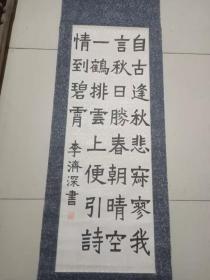 自古逢秋悲寂寥我
言秋日勝春朝晴空
一鶴排雲上便引詩
情到碧霄
李濟深書